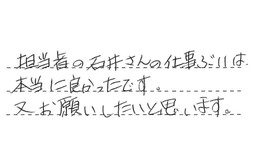 担当者の石井さんの仕事ぶりは
本当に良かったです。
又お願いしたいと思います。